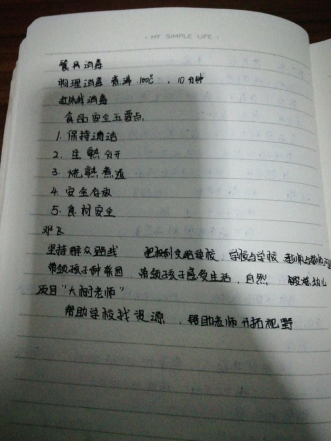 · MY SIMPLE LIFE ·
餐具消毒
物理消毒 煮沸 100℃ , 10分钟
红外线消毒
食品安全五要点
1. 保持清洁
2. 生熟分开
3. 烧熟煮透
4. 安全存放
5. 食材安全
邓飞
坚持群众路线 把权利交给学校, 学校与学校
带领孩子种菜园 带领孩子感受生活, 自然
项目"大树老师"
帮助学校找资源 , 帮助老师开拓视野